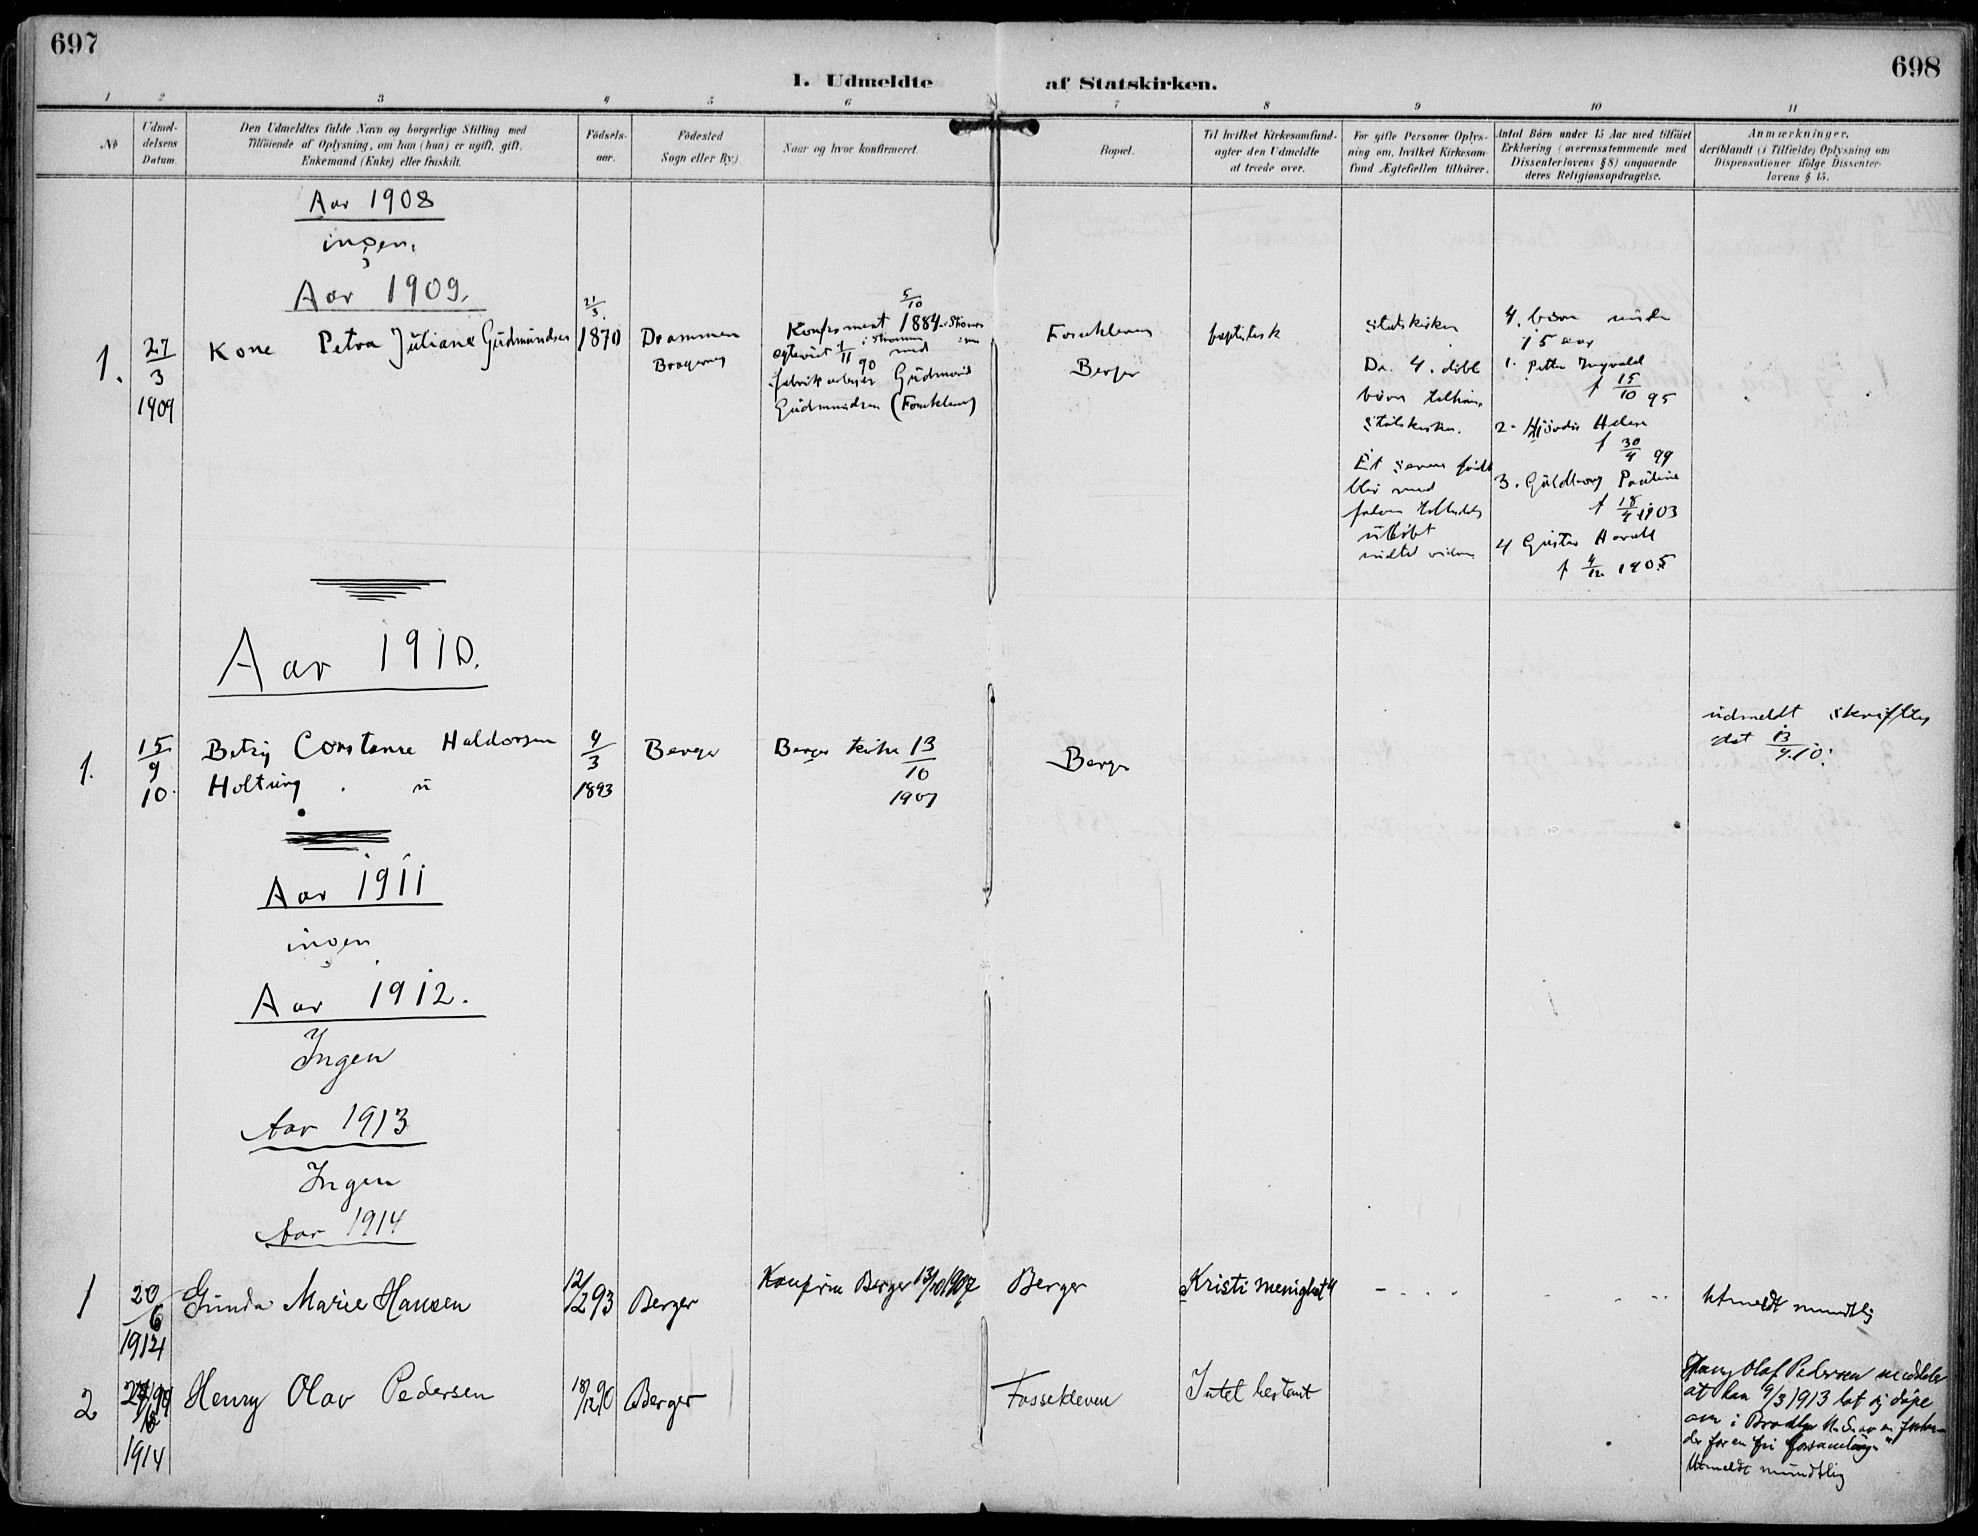 697
698
1. Udmeldte af Statskirken.
1 2 3 4 5 6 7 8 9 10 11
No
Udmel-
delsens
Datum.
Den Udmeldtes fulde Navn og borgerlige Stilling med
Tilføiende af Oplysning, om han (hun) er ugift, gift,
Enkemand (Enke) eller fraskilt.
Fødsels-
aar.
Fødested
Sogn eller By.)
Naar og hvor konfirmeret.
Bopæl.
Til hvilket Kirkesamfund-
agter den Udmeldte
at træde over.
For gifte Personer Oplys-
ning om, hvilket Kirkesam-
fund Ægtefællen tilhører.
Antal Børn under 15 Aar med tilføiet
Erklæring (overensstemmende med
Dissenterlovens § 8) angaaende
deres Religionsopdragelse.
Anmærkninger.
deriblandt (i Tilfælde) Oplysning om
Dispensationer ifølge Dissenter-
lovens § 15.
Aar 1908
ingen.
Aar 1909.
1. 27/3 1909
Kone Petra Juliane Gudmundsen
21/3 1870
Drammen
Bragernes
5/10
Konfirmert 1884
ægteviet 1/11 90 i Strømm med
fabrikarbejder Gudmund
Gudmundsen (Fossekleven)
Fossekleven
Berger
baptistisk
Statskirken
De 4 døbte
børn tilhører
Statskirken.
Et senere født
blir med
faderens tilladelse
udøbt
indtil videre
4. børn under
15 aar
1. Petter Ingvald
f 15/10 95
2. Hjørdis Helene
f 30/4 99
3. Guldborg Pauline
f 18/4 1903
4 Gustav Harald
f 4/12 1905
Aar 1910.
1. 15/9 10.
Betzy Constanse Haldorsen
Holtung . u
4/3 1893
Berger
Berger kirke 13/10 1907
Berger
udmeldt skriftlig
dat 13/9.10.
Aar 1911
ingen
Aar 1912.
Ingen
Aar 1913
Ingen
Aar 1914
1 20/6 1914
Gunda Marie Hansen
12/12 93
Berger
Konfirm Berger 13/10 1907
Berger
Kristi menighet
Utmeldt mundtlig
2
1914
Henry Olav Pedersen
18/12 90
Berger
Fossekleven
Intet bestemt
Henry Olaf Pedersen meddeler
at han 9/3 1913 lot sig døpe
om i Brooklyn
der for en fri forsamling
Utmeldt mundtlig